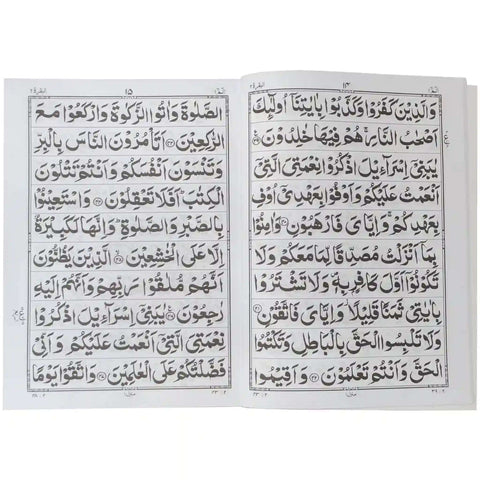 البقرة ٢ ١٤ الٓمّٓ ١
وَالَّذِيْنَ كَفَرُوْا وَكَذَّبُوْا بِاٰيٰتِنَآ اُولٰٓئِكَ
اَصْحٰبُ النَّارِ ۚ هُمْ فِيْهَا خٰلِدُوْنَ ۝٣٩
يٰبَنِيْٓ اِسْرَآءِيْلَ اذْكُرُوْا نِعْمَتِيَ الَّتِيْٓ
اَنْعَمْتُ عَلَيْكُمْ وَاَوْفُوْا بِعَهْدِيْٓ اُوْفِ
بِعَهْدِكُمْ ۚ وَاِيَّايَ فَارْهَبُوْنِ ۝٤٠ وَاٰمِنُوْا
بِمَآ اَنْزَلْتُ مُصَدِّقًا لِّمَا مَعَكُمْ وَلَا
تَكُوْنُوْٓا اَوَّلَ كَافِرٍۢ بِهٖ ۪ وَلَا تَشْتَرُوْا
بِاٰيٰتِيْ ثَمَنًا قَلِيْلًا ۡ وَّاِيَّايَ فَاتَّقُوْنِ ۝٤١
وَلَا تَلْبِسُوا الْحَقَّ بِالْبَاطِلِ وَتَكْتُمُوا
الْحَقَّ وَاَنْتُمْ تَعْلَمُوْنَ ۝٤٢ وَاَقِيْمُوا
٣٩ : ٢ منزل ١ ٤٣ : ٢
البقرة ٢ ١٥ الٓمّٓ ١
الصَّلٰوةَ وَاٰتُوا الزَّكٰوةَ وَارْكَعُوْا مَعَ
الرّٰكِعِيْنَ ۝٤٣ اَتَاْمُرُوْنَ النَّاسَ بِالْبِرِّ
وَتَنْسَوْنَ اَنْفُسَكُمْ وَاَنْتُمْ تَتْلُوْنَ
الْكِتٰبَ ؕ اَفَلَا تَعْقِلُوْنَ ۝٤٤ وَاسْتَعِيْنُوْا
بِالصَّبْرِ وَالصَّلٰوةِ ؕ وَاِنَّهَا لَكَبِيْرَةٌ
اِلَّا عَلَى الْخٰشِعِيْنَ ۝٤٥ الَّذِيْنَ يَظُنُّوْنَ
اَنَّهُمْ مُّلٰقُوْا رَبِّهِمْ وَاَنَّهُمْ اِلَيْهِ
رٰجِعُوْنَ ۝٤٦ يٰبَنِيْٓ اِسْرَآءِيْلَ اذْكُرُوْا
نِعْمَتِيَ الَّتِيْٓ اَنْعَمْتُ عَلَيْكُمْ وَاَنِّيْ
فَضَّلْتُكُمْ عَلَى الْعٰلَمِيْنَ ۝٤٧ وَاتَّقُوْا يَوْمًا
٤٣ : ٢ منزل ١ ٤٨ : ٢